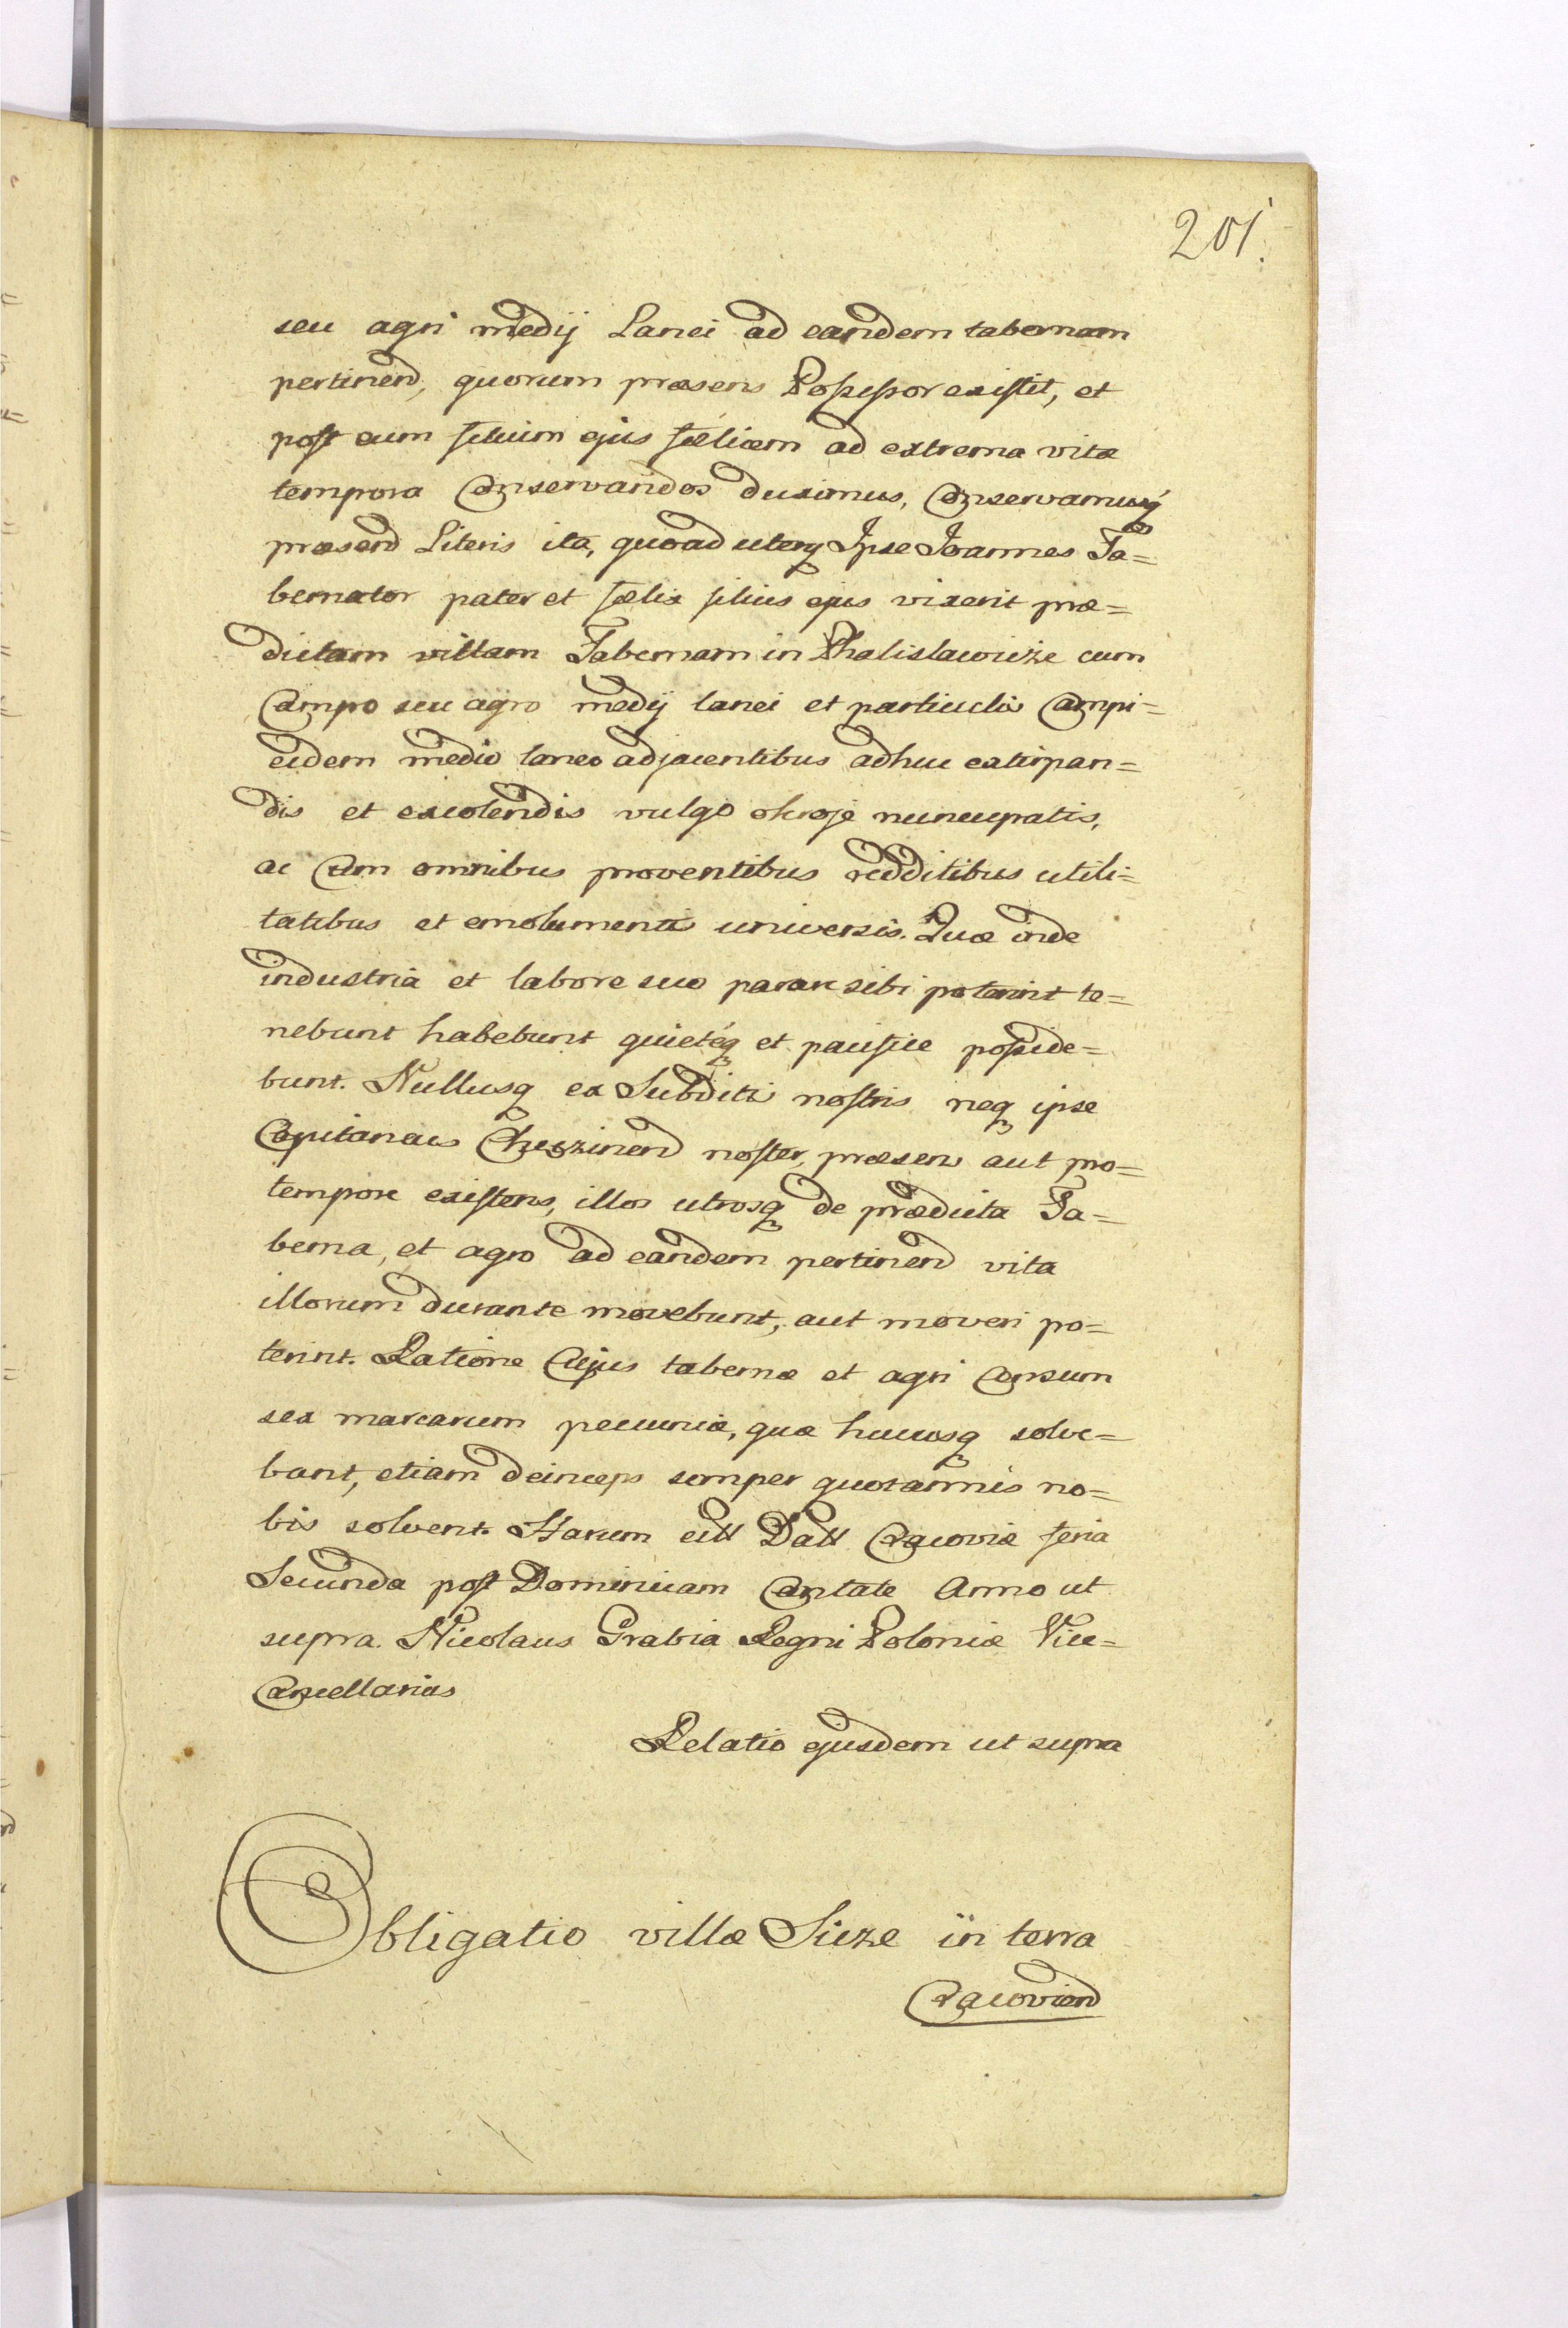 201.
seu agri medij Lanei ad eandem tabernam
pertinend, quorum præsens Possessor existit, et
post eum filium ejus fælicem ad extrema vitæ
tempora Conservandos duximus, Conservamusq
præsend Literis ita, quoad uterq Ipse Joannes Ta=
bernator pater et fælix filius ejus vixerit præ=
dictam villam Tabernam in Phalislawicze cum
Campo seu agro medij lanei et particulis Campi=
eidem medio laneo adjacentibus adhuc extirpan=
dis et excolendis vulgo okroje nuncupatis,
ac Cum omnibus proventibus redditibus utili=
tatibus et emolumentis universis. Quæ inde
industria et labore suo parare sibi poterint te=
nebunt habebunt quietéq et pacifice posside=
bunt. Nullusq ex Subditis nostris neq ipse
Capitaneus Chęczinend noster, præsens aut pro=
tempore existens, illos utrosq de prædicta Ta=
berna, et agro ad eandem pertinend vita
illorum durante movebunt, aut moveri po=
terint. Ratione Cujus tabernæ et agri Censum
sex marcarum pecuniæ, quæ hucusq solve=
bant, etiam deinceps semper quotannis no=
bis solvent. Harum ett Datt Cracoviæ feria
Secunda post Dominicam Cantate Anno ut
supra. Nicolaus Grabia Regni Poloniæ Vice=
Cancellarius
Relatio ejusdem ut supra
Obligatio villæ Sicze in terra
Cracoviend